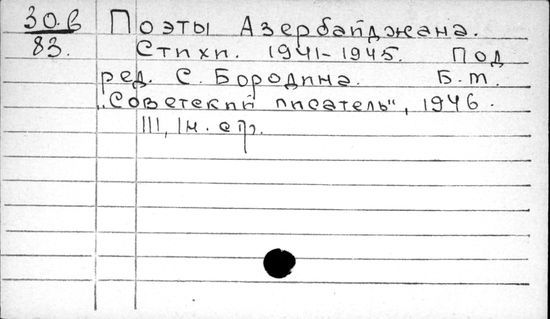 30.в
83.
Поэты Азербайджана.
Стихи. 1941-1945. Под
ред. С. Бородина. Б.т.
„Советский писатель", 1946.
111, 1н. стр.